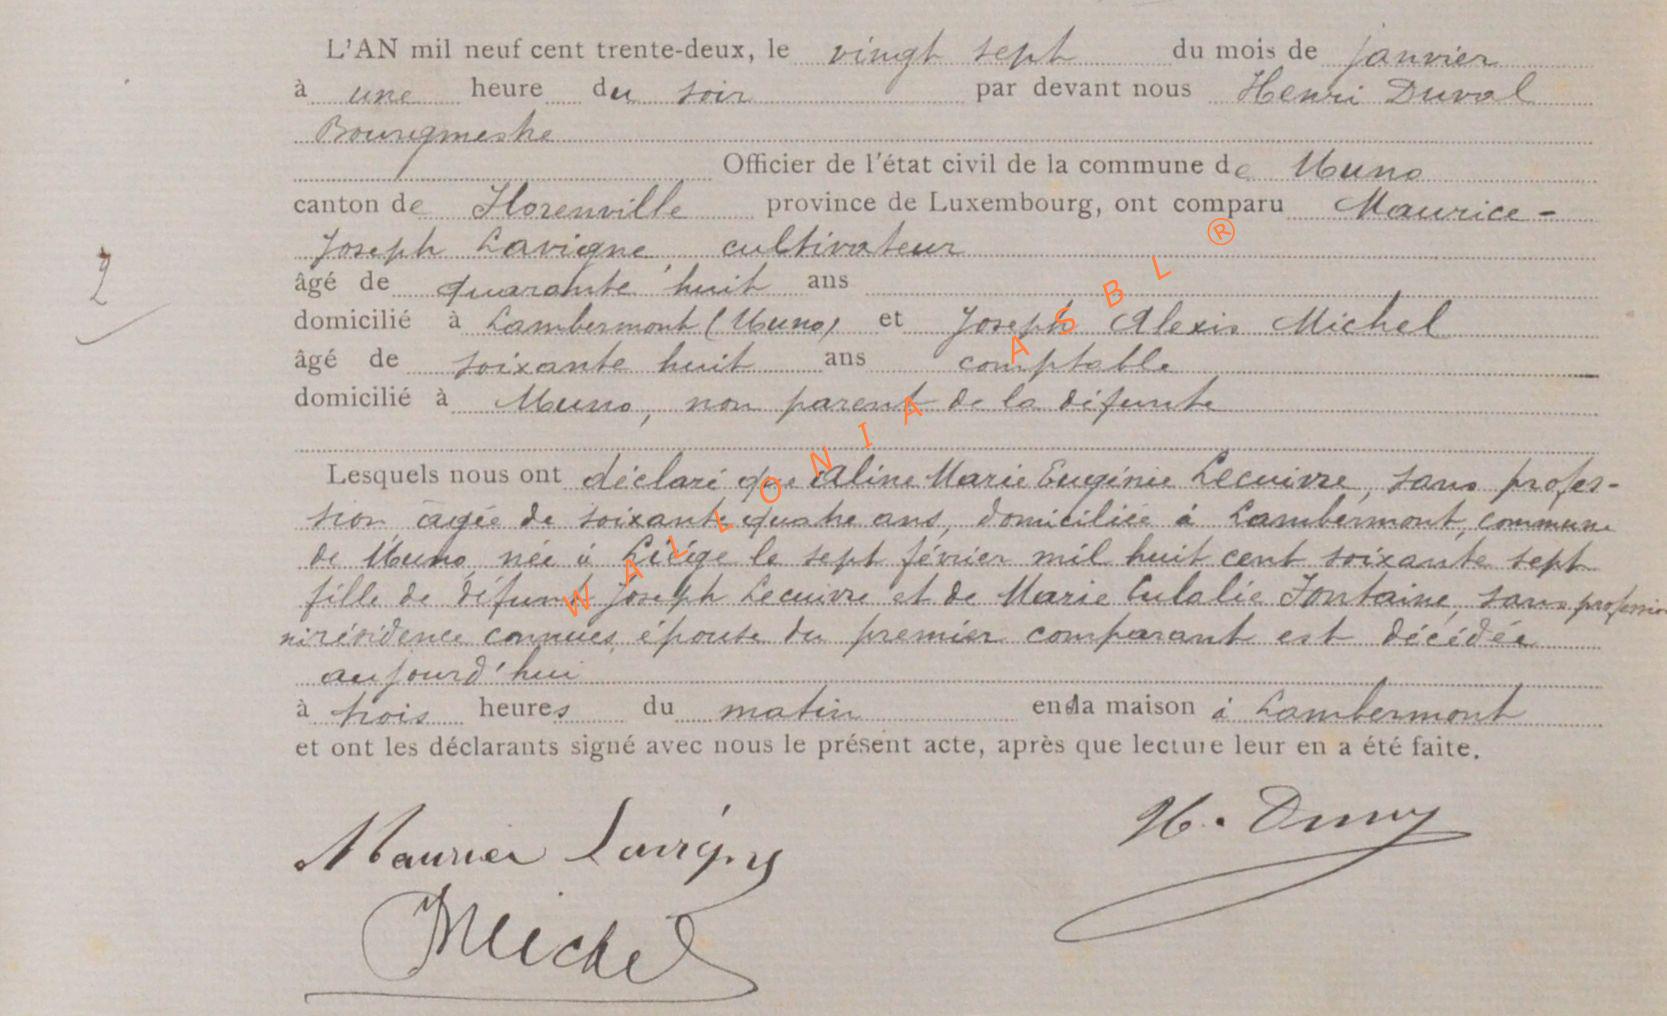 L'AN mil neuf cent trente-deux, le vingt sept du mois de janvier
à une heure du soir par devant nous Henri Duval
Bourgmestre
Officier de l'état civil de la commune de Muno
canton de Florenville province de Luxembourg, ont comparu Maurice-
Joseph Lavigne cultivateur
2
âgé de quarante huit ans
domicilié à Lambermont (Muno) et Joseph Alexis Michel
âgé de soixante huit ans comptable
domicilié à Muno, non parent de la défunte
Lesquels nous ont déclaré que Aline Marie Eugénie Lecuivre, sans profes-
sion âgée de soixante quatre ans, domiciliée à Lambermont, commune
de Muno née à Liége le sept février mil huit cent soixante sept
fille de défunt Joseph Lecuivre et de Marie Eulalie Fontaine, sans profession
ni résidence connues, épouse du premier comparant est décédée
aujourd'hui
à trois heures du matin en sa maison à Lambermont
et ont les déclarants signé avec nous le présent acte, après que lecture leur en a été faite.
H. Duval
Maurice Lavigne
JMichel
WALLONIA ASBL ®